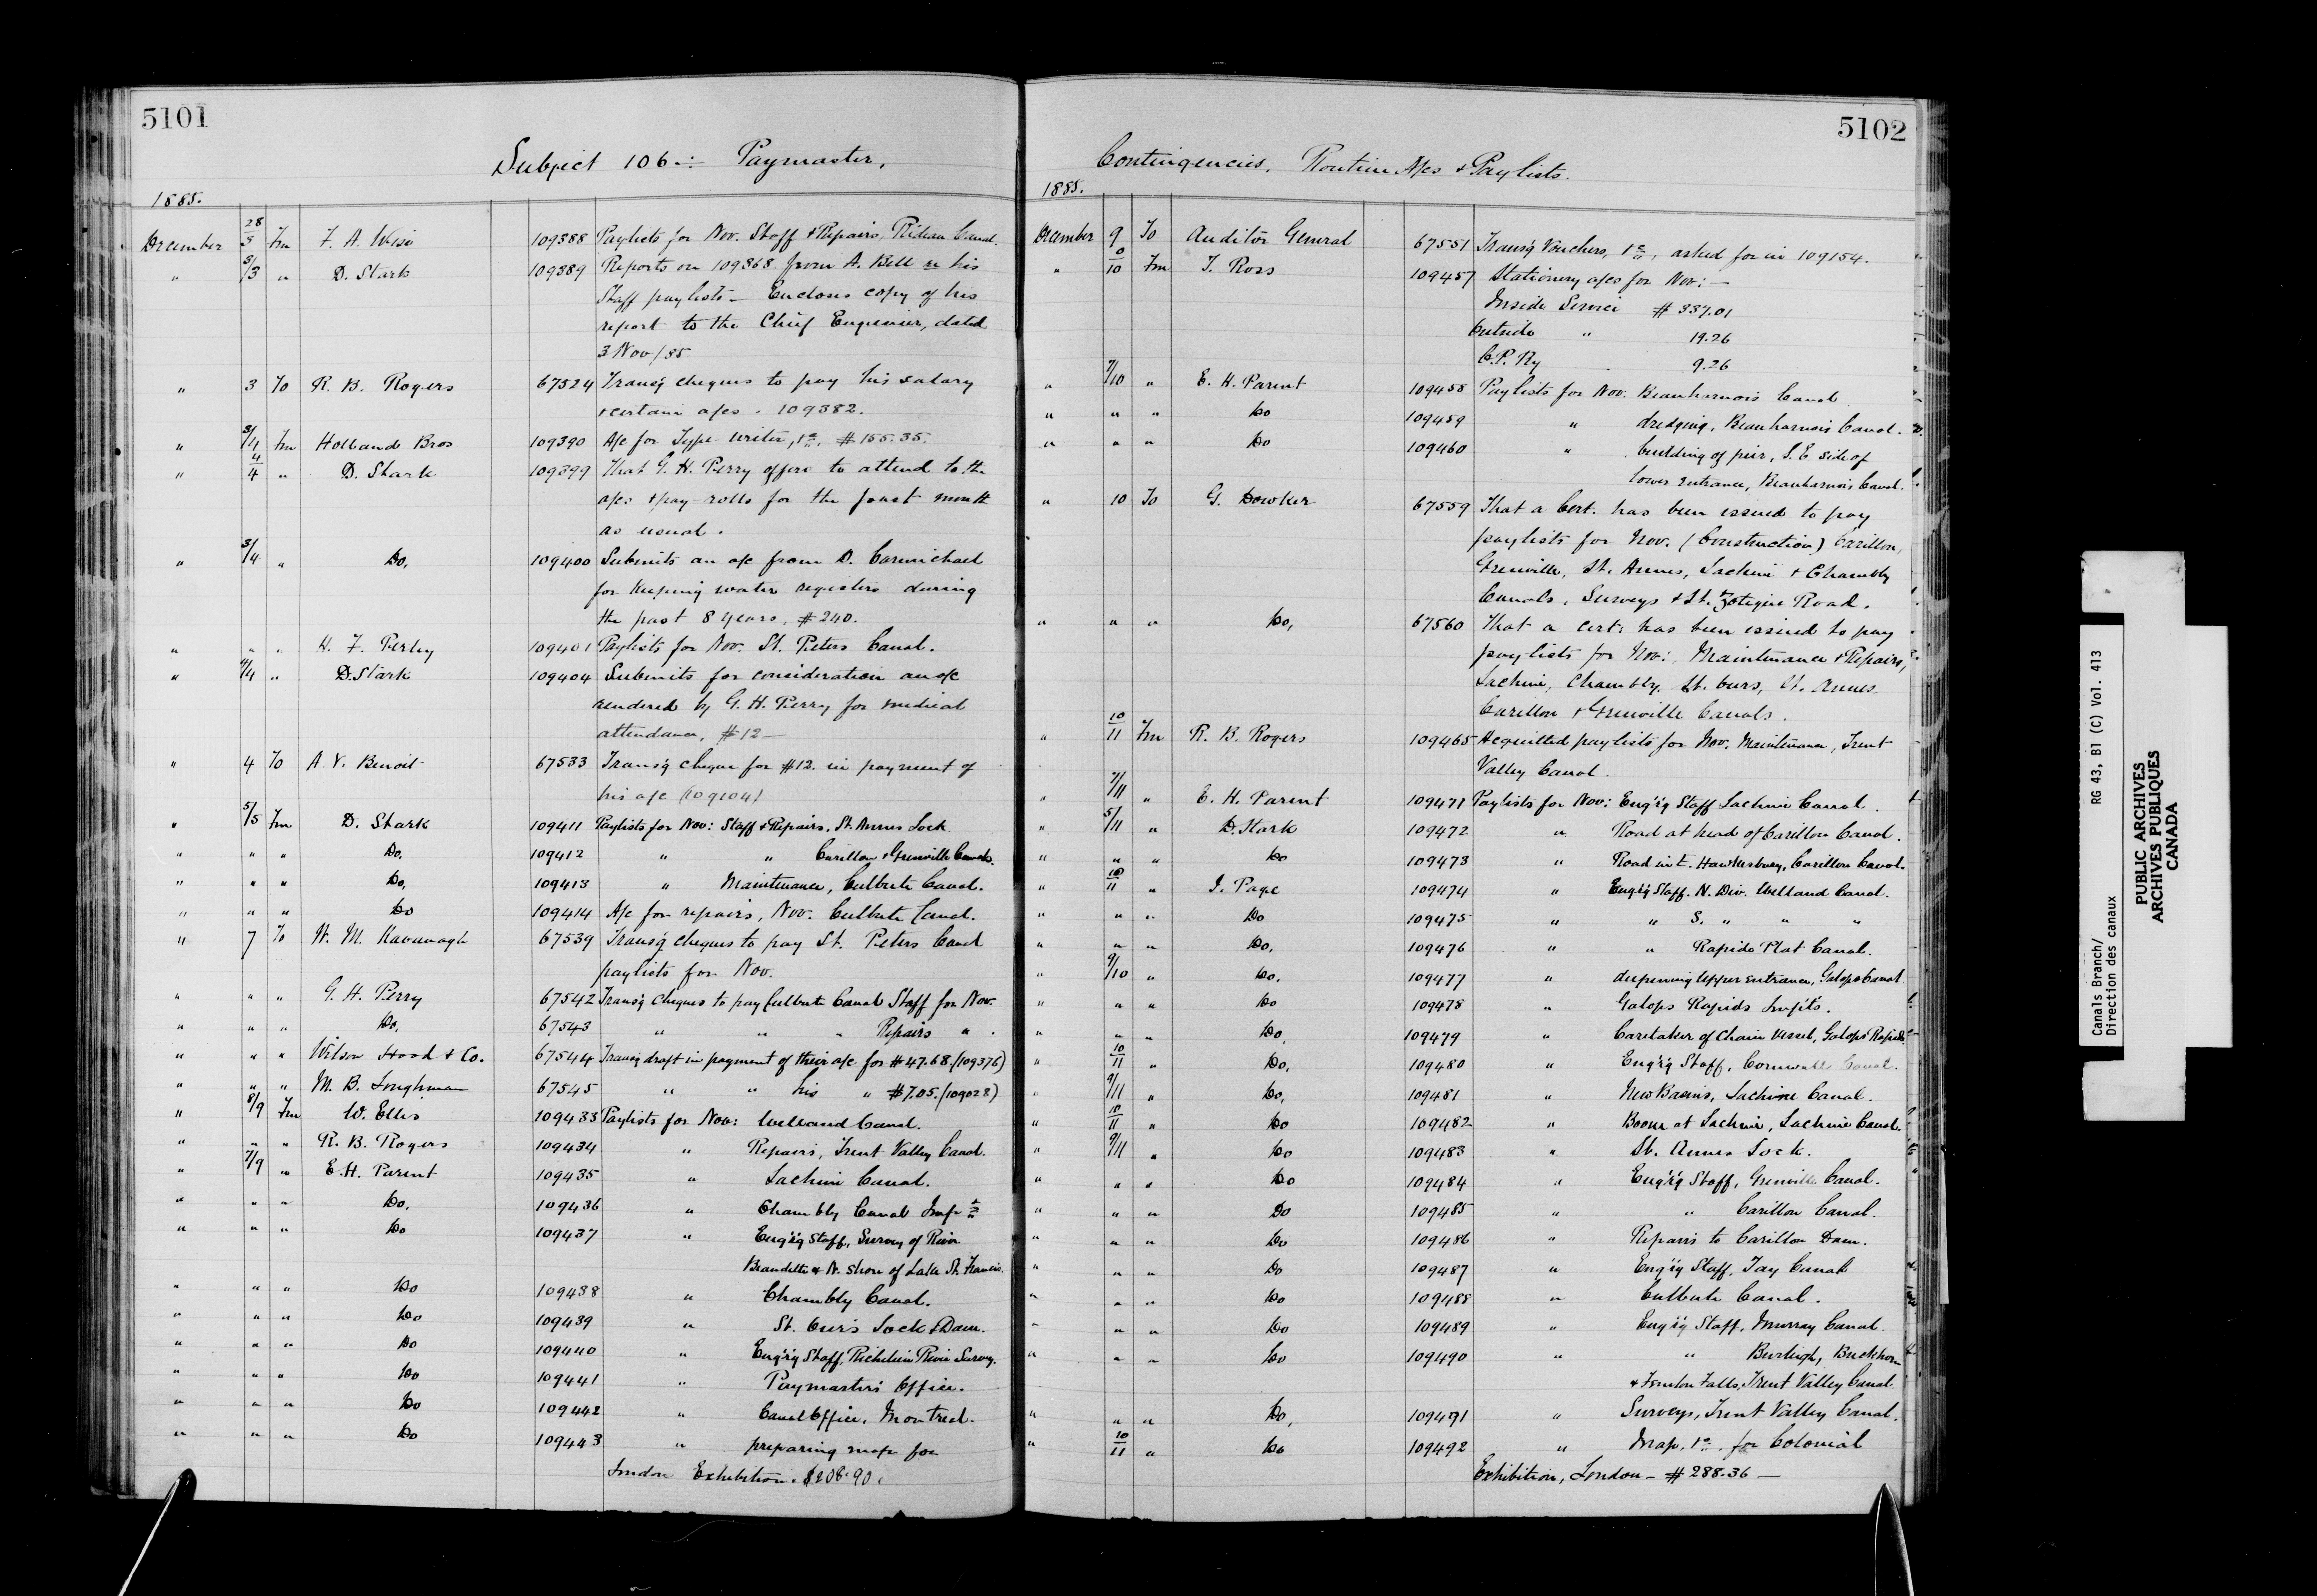 5101
Subject 106 :- Paymaster,
1885.
December 28/3 Fm F. A. Wise 109388 Paylists for Nov. Staff & Repairs, Rideau Canal.
" 3/3 " D. Stark 109389 Reports on 109368 from A. Bell re his
Staff paylists - Encloses copy of his
report to the Chief Engineer, dated
3 Nov/85.
" 3 To R. B. Rogers 67524 Transg cheques to pay his salary
& certain a/cs. 109382.
" 3/4 Fm Holland Bros 109390 A/c for Type writer, &c, $155.35.
" 4/4 " D. Stark 109399 That G. H. Perry offers to attend to the
a/cs & pay-rolls for the past month
as usual.
" 3/4 " Do. 109400 Submits an a/c from D. Carmichael
for keeping water registers during
the past 8 years, $240.
" " " H. F. Perley 109401 Paylists for Nov. St. Peters Canal.
" 4/4 " D. Stark 109404 Submits for consideration an a/c
rendered by G. H. Perry for medical
attendance, $12 —
" 4 To A. V. Benoit 67533 Transg cheque for $12. in payment of
his a/c (109104)
" 5/5 Fm D. Stark 109411 Paylists for Nov: Staff & Repairs, St. Annes Lock.
" " " Do. 109412 " " Carillon & Grenville Canals.
" " " Do. 109413 " Maintenance, Culbute Canal.
" " " Do 109414 A/c for repairs, Nov. Culbute Canal.
" 7 To W. M. Kavanagh 67539 Transg cheques to pay St. Peters Canal
paylists for Nov.
" " " G. H. Perry 67542 Transg cheques to pay Culbute Canal Staff for Nov.
" " " Do. 67543 " " " Repairs " .
" " " Wilson Hood & Co. 67544 Transg draft in payment of their a/c for $47.68. (109376)
" " " M. B. Loughman 67545 " " his " $7.05. (109028)
" 8/9 Fm W. Ellis 109433 Paylists for Nov: Welland Canal.
" " " R. B. Rogers 109434 " Repairs, Trent Valley Canal.
" 7/9 " E. H. Parent 109435 " Lachine Canal.
" " " Do. 109436 " Chambly Canal Impts
" " " Do 109437 " Eng'r'g Staff, Survey of River
Beaudette & N. Shore of Lake St. Francis.
" " " Do 109438 " Chambly Canal.
" " " Do 109439 " St. Ours Lock & Dam.
" " " Do 109440 " Eng'r'g Staff, Richelieu River Survey.
" " " Do 109441 " Paymaster's Office.
" " " Do 109442 " Canal Office, Montreal.
" " " Do 109443 " preparing map for
London Exhibition. $208.90.
5102
Contingencies. Routine A/cs & Paylists.
1885.
December 9 To Auditor General 67551 Transg Vouchers, &c, asked for in 109154.
" 9/10 Fm T. Ross 109457 Stationery a/cs for Nov: —
Inside Service $337.01
Outside " 19.26
C.P. Ry 9.26
" 7/10 " E. H. Parent 109458 Paylists for Nov. Beauharnois Canal
" " " Do 109459 " dredging, Beauharnois Canal.
" " " Do 109460 " building of pier, S. E. side of
lower entrance, Beauharnois Canal.
" 10 To G. Dowker 67559 That a Cert. has been issued to pay
paylists for Nov. (Construction) Carillon,
Grenville, St. Annes, Lachine & Chambly
Canals, Surveys & St. Zotique Road.
" " " Do. 67560 That a cert: has been issued to pay
paylists for Nov: Maintenance & Repairs,
Lachine, Chambly, St. Ours, St. Annes,
Carillon & Grenville Canals.
" 10/11 Fm R. B. Rogers 109465 Acquitted paylists for Nov. Maintenance, Trent
Valley Canal.
" 7/11 " E. H. Parent 109471 Paylists for Nov: Eng'r'g Staff Lachine Canal.
" 5/11 " D. Stark 109472 " Road at head of Carillon Canal.
" " " Do 109473 " Road in E. Hawkesbury, Carillon Canal.
" 10/11 " J. Page 109474 " Eng'r'g Staff. N. Div. Welland Canal.
" " " Do 109475 " " S. " " "
" " " Do. 109476 " " Rapide Plat Canal.
" 9/10 " Do. 109477 " deepening Upper entrance, Galops Canal
" " " Do 109478 " Galops Rapids Impts.
" " " Do 109479 " Caretaker of Chain Vessel, Galops Rapids
" 10/11 " Do. 109480 " Eng'r'g Staff, Cornwall Canal.
" 9/11 " Do. 109481 " New Basins, Lachine Canal.
" 10/11 " Do 109482 " Boom at Lachine, Lachine Canal.
" 9/11 " Do 109483 " St. Annes Lock.
" " " Do 109484 " Eng'r'g Staff, Grenville Canal.
" " " Do 109485 " " Carillon Canal.
" " " Do 109486 " Repairs to Carillon Dam.
" " " Do 109487 " Eng'r'g Staff, Tay Canal
" " " Do 109488 " Culbute Canal.
" " " Do 109489 " Eng'r'g Staff, Murray Canal.
" " " Do 109490 " " Burleigh, Buckhorn
& Fenelon Falls, Trent Valley Canal
" " " Do. 109491 " Surveys, Trent Valley Canal.
" 10/11 " Do 109492 " Map, &c. for Colonial
Exhibition, London - $288.36 —
Canals Branch/ RG 43, B1 (C) Vol. 413
Direction des canaux
PUBLIC ARCHIVES
ARCHIVES PUBLIQUES
CANADA